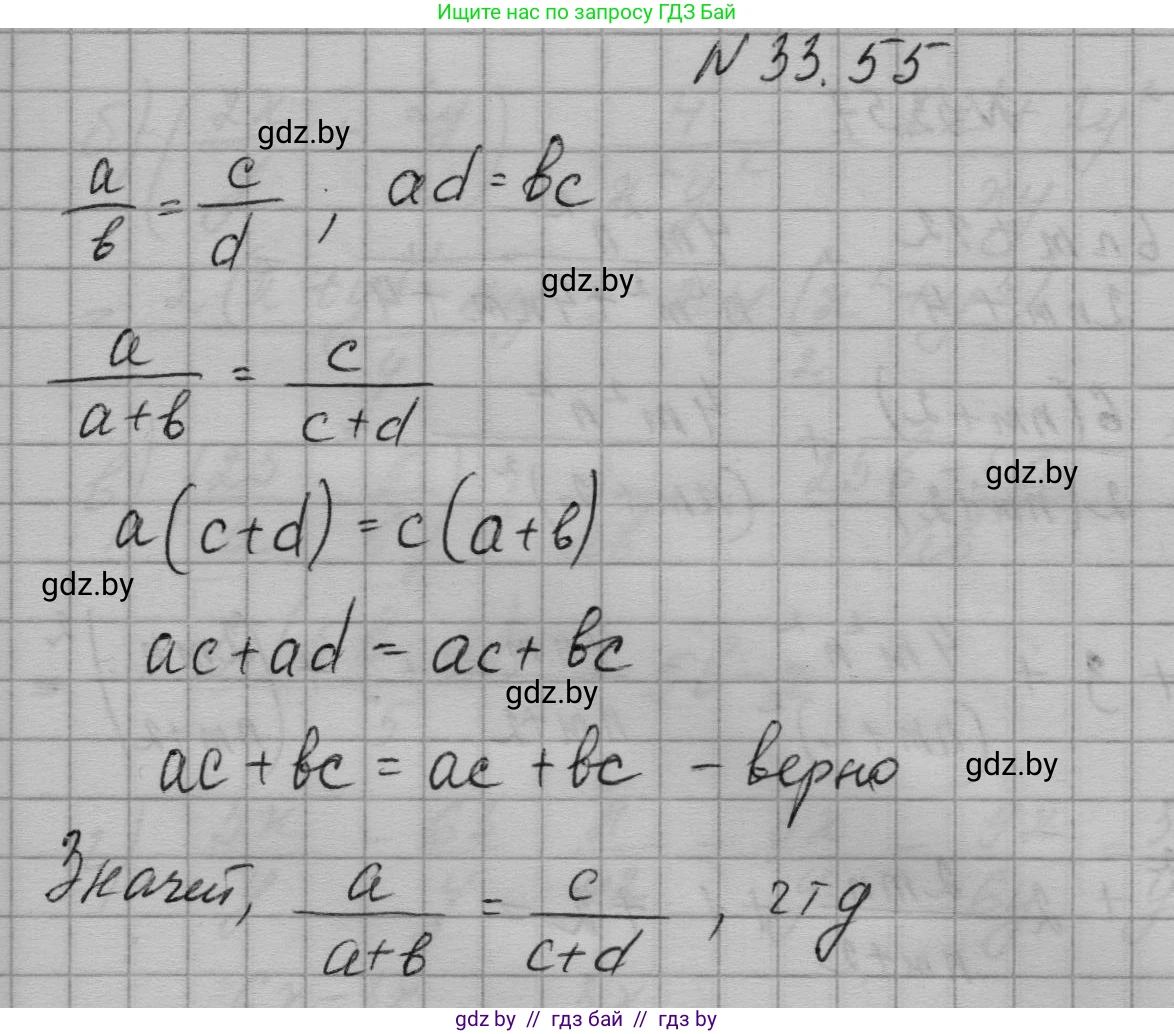 Ищите нас по запросу ГДЗ Бай
N 33.55
gdz.by
a/в = c/d ; ad = вc
gdz.by
a/(a+в) = c/(c+d)
gdz.by
a(c+d) = c(a+в)
gdz.by
ac+ad = ac+вc
gdz.by
ac+вc = ac+вc - верно
gdz.by
Значит, a/(a+в) = c/(c+d), чтд
gdz.by // гдз бай // гдз by